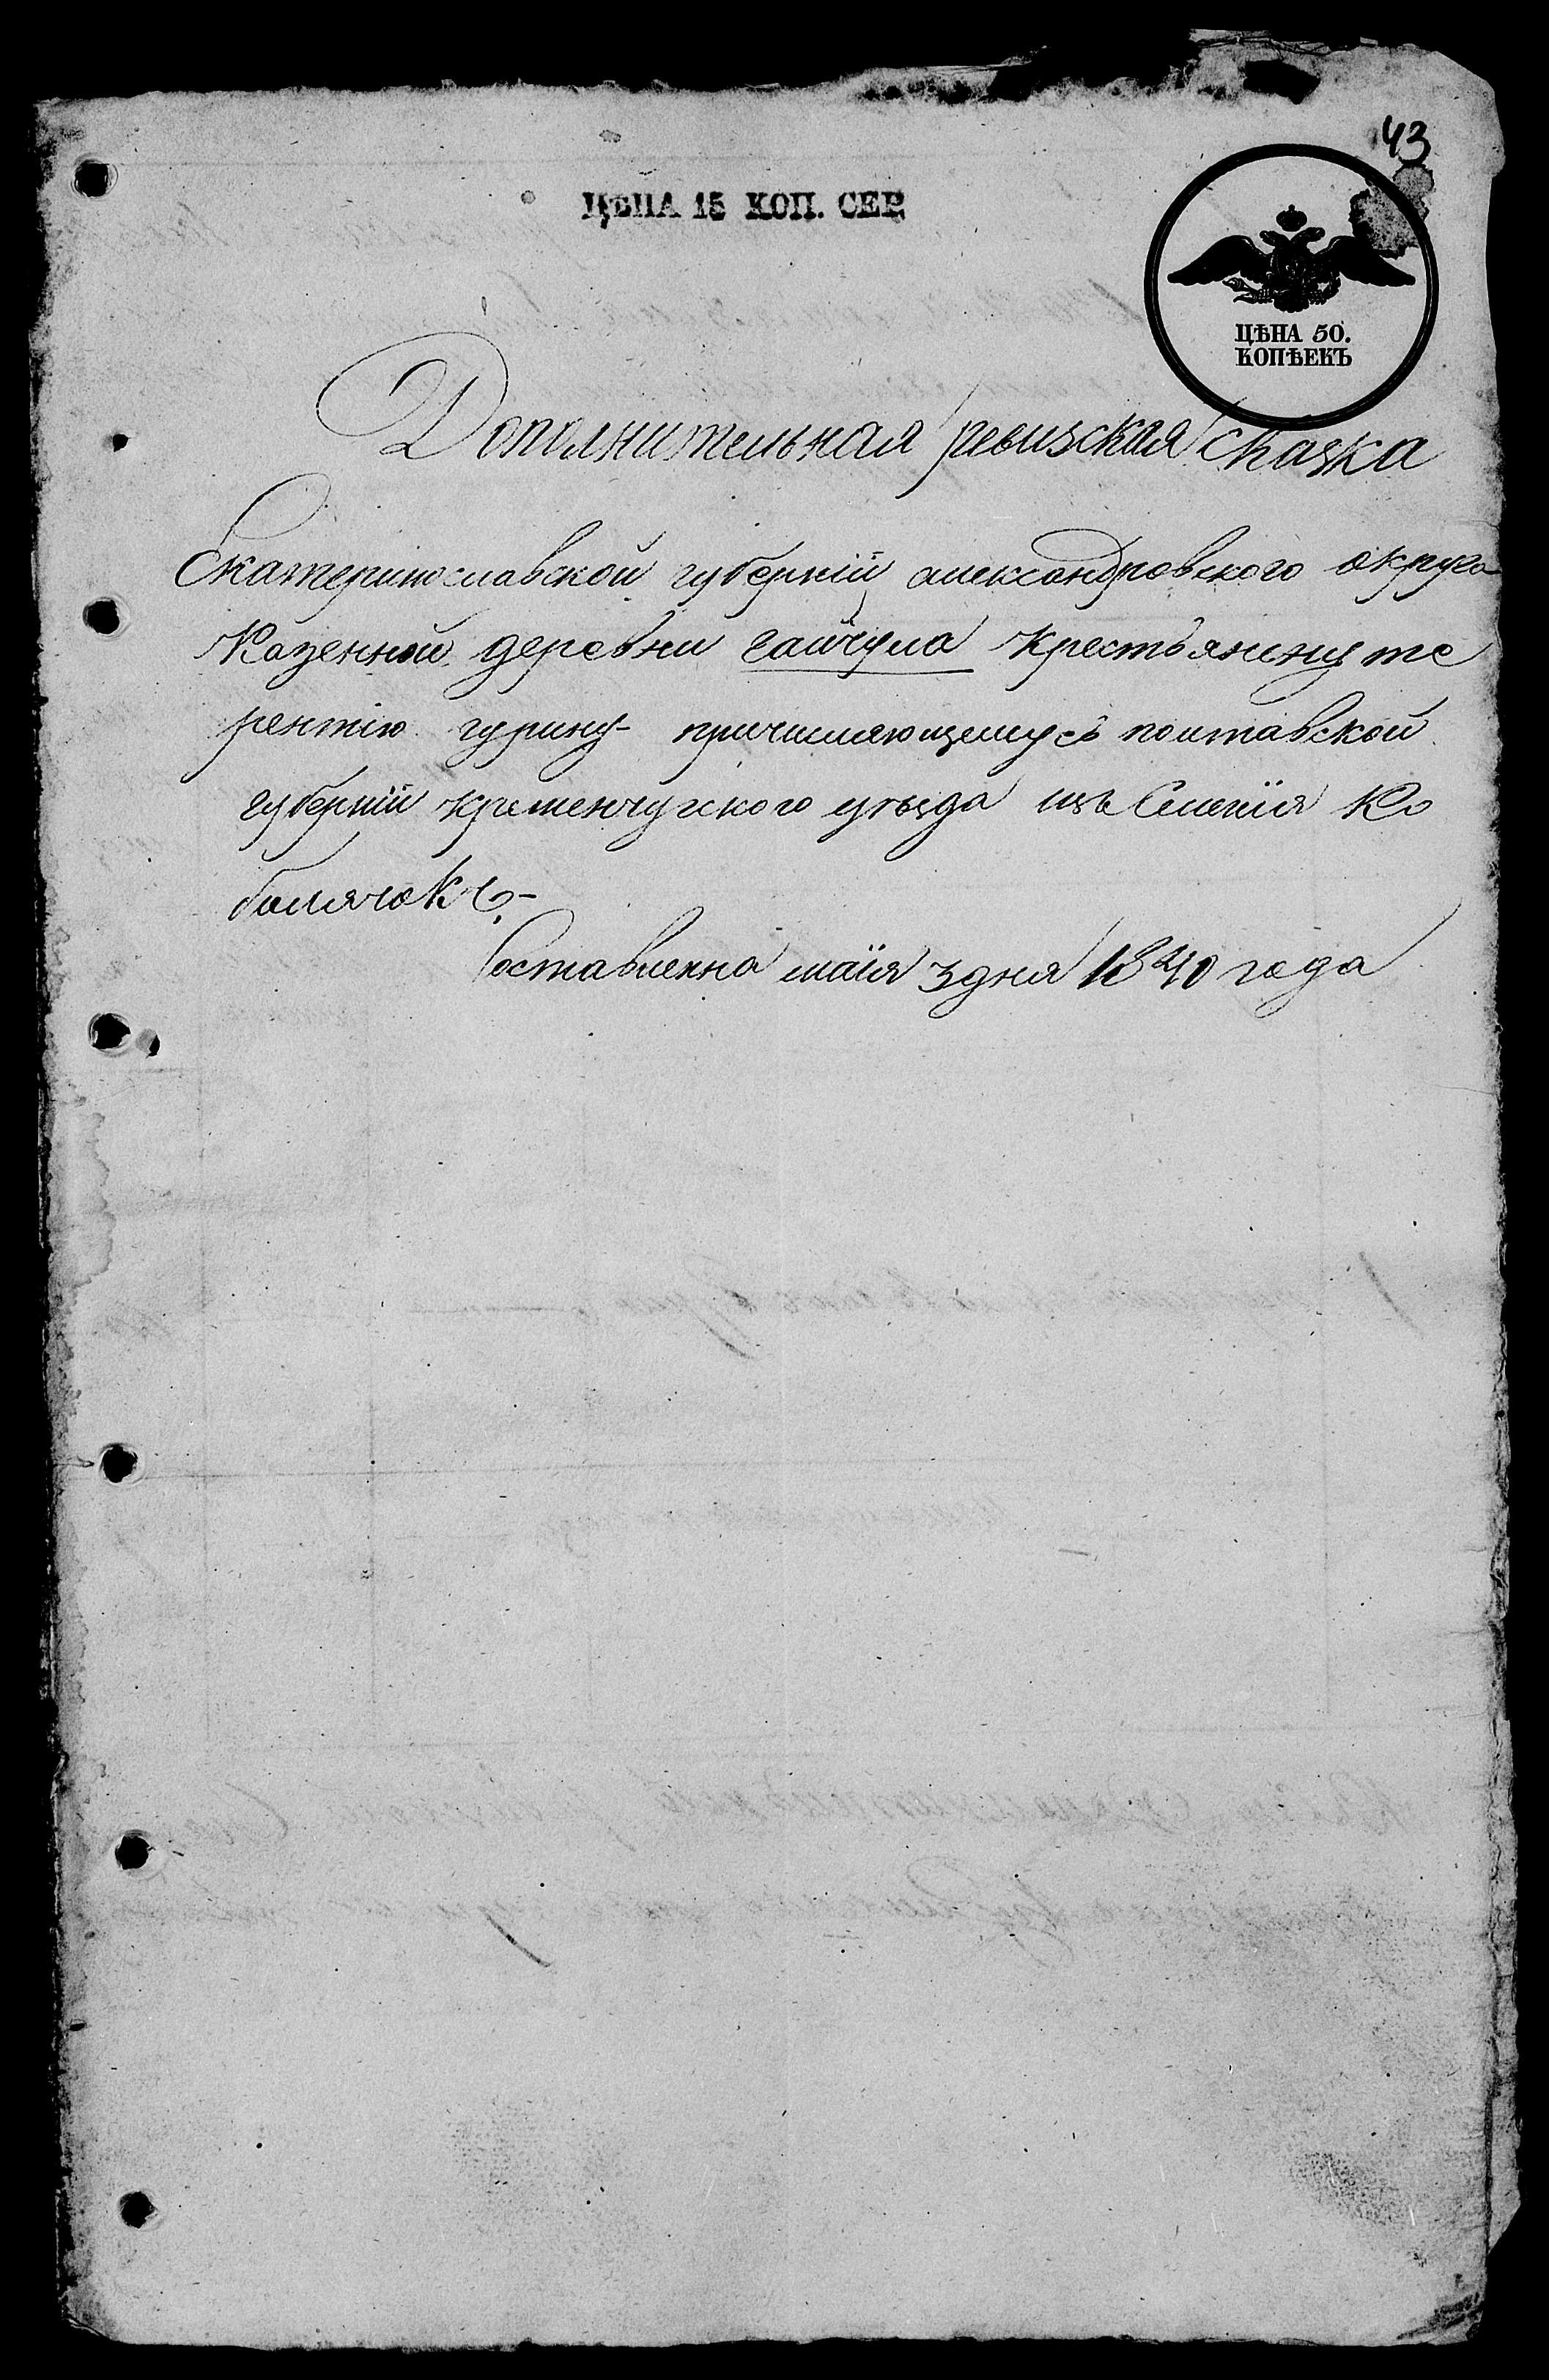 43
ЦѢНА 15 КОП. СЕР.
ЦѢНА 50.
КОПѢЕКЪ
Дополнительная ревизская сказка
Екатеринославской губерніи александровского округа
Казенной деревни гайчула крестьянину те
рентію гурину- причисляющемуся полтавской
губерніи кременчугского уѣзда изъ Селенія Ко
белячокъ-
Составленна маія 3 дня 1840 года